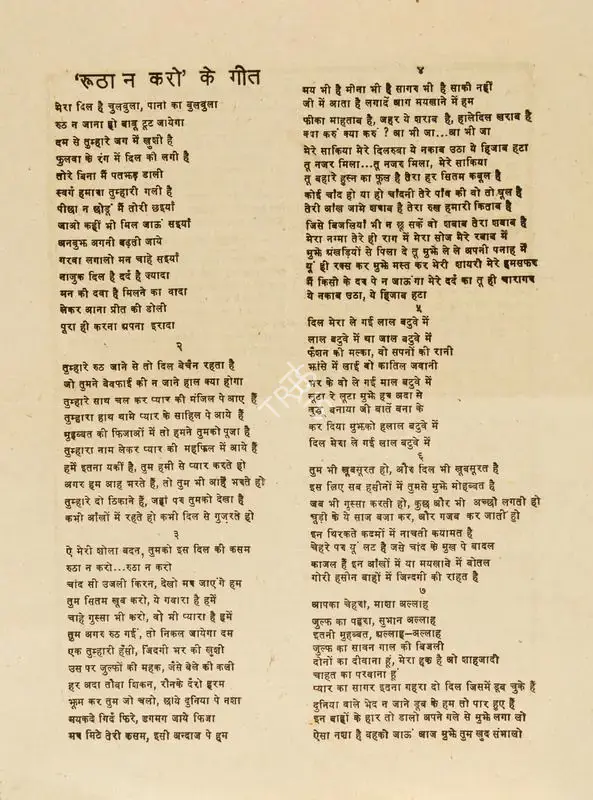 'रूठा न करो' के गीत
मेरा दिल है चुलबुला, पानी का बुलबुला
रुठ न जाना हो बाबू टूट जायेगा
दम से तुम्हारे जग में खुशी है
फूलवा के रंग में दिल की लगी है
तोरे बिना मैं पतझड़ डाली
स्वर्ग हमारा तुम्हारी गली है
पीछा न छोडूं मैं तोरी छइयाँ
जाओ कहीं भी मिल जाऊं सइयाँ
अनबुझ अगनी बढ़ती जाये
गरवा लगालो मन चाहे सइयाँ
नाजुक दिल है दर्द है ज्यादा
मन की दवा है मिलने का वादा
लेकर आना प्रीत की डोली
पूरा ही करना अपना इरादा
२
तुम्हारे रुठ जाने से तो दिल बेचैन रहता है
जो तुमने बेवफाई की न जाने हाल क्या होगा
तुम्हारे साथ चल कर प्यार की मंजिल पे आए हैं
तुम्हारा हाथ थामे प्यार के साहिल पे आये हैं
मुहब्बत की फिजाओं में तो हमने तुमको पूजा है
तुम्हारा नाम लेकर प्यार की महफिल में आये हैं
हमें इतना यकीं है, तुम हमी से प्यार करते हो
अगर हम आह भरते हैं, तो तुम भी आहें भरते हो
तुम्हारे दो ठिकाने हैं, जहाँ पर तुमको देखा है
कभी आँखों में रहते हो कभी दिल से गुजरते हो
३
ऐ मेरी शोला बदन, तुमको इस दिल की कसम
रुठा न करो...रुठा न करो
चांद सी उजली किरन, देखो मर जाएंगे हम
तुम सितम खूब करो, ये गवारा है हमें
चाहे गुस्सा भी करो, वो भी प्यारा है हमें
तुम अगर रुठ गई, तो निकल जायेगा दम
एक तुम्हारी हँसी, जिंदगी भर की खुशी
उस पर जुल्फों की महक, जैसे बेले की कली
हर अदा तौबा शिकन, रौनके दैरो हरम
झूम कर तुम जो चलो, छाये दुनिया पे नशा
मयकदे गिर्द फिरे, डगमग जाये फिजा
मर मिटे तेरी कसम, इसी अन्दाज पे हम
४
मय भी है मीना भी है सागर भी है साकी नहीं
जी में आता है लगादें आग मयखाने में हम
फीका माहताब है, जहर ये शराब है, हालेदिल खराब है
क्या करुं क्या करुं ? आ भी जा...आ भी जा
मेरे साकिया मेरे दिलरुबा ये नकाब उठा ये हिजाब हटा
तू नजर मिला...तू नजर मिला, मेरे साकिया
तू बहारे हुस्न का फूल है तेरा हर सितम कबूल है
कोई चांद हो या हो चांदनी तेरे पाँव की वो तो धूल है
तेरी आँख जामे शराब है तेरा रुख हमारी किताब है
जिसे बिजलियाँ भी न छू सकें वो शबाब तेरा शबाब है
मेरा नग्मा तेरे ही राग में मेरा सोज मेरे रबाब में
मुझे अंखड़ियों से पिला दे तू मुझे ले ले अपनी पनाह में
यूं ही रक्स कर मुझे मस्त कर मेरी शायरी मेरे हमसफर
मैं किसी के दर पे न जाऊंगा मेरे दर्द का तू ही चारागर
ये नकाब उठा, ये हिजाब हटा
५
दिल मेरा ले गई लाल बटुवे में
लाल बटुवे में या जाल बटुवे में
फैशन की मल्का, वो सपनों की रानी
झांसे में लाई वो कातिल जवानी
भर के वो ले गई माल बटुवे में
लूटा रे लूटा मुझे हर अदा से
बनाया जी बातें बना के
कर दिया मुझको हलाल बटुवे में
दिल मेरा ले गई लाल बटुवे में
६
तुम भी खूबसूरत हो, और दिल भी खूबसूरत है
इस लिए सब हसीनों में तुमसे मुझे मोहब्बत है
जब भी गुस्सा करती हो, कुछ और भी अच्छी लगती हो
चूड़ी के ये साज बजा कर, और गजब कर जाती हो
इन थिरकते कदमों में नाचती कयामत है
चेहरे पर यूं लट है जसे चांद के मुख पे बादल
काजल हैं इन आँखों में या मयखाने में बोतल
गोरी हसीन बाहों में जिन्दगी की राहत है
७
आपका चेहरा, माशा अल्लाह
जुल्फ का पहरा, सुभान अल्लाह
इतनी मुहब्बत, अल्लाह–अल्लाह
जुल्फ का सावन गाल की बिजली
दोनों का दीवाना हूं, मेरा हक है ओ शाहजादी
चाहत का परवाना हूं
प्यार का सागर इतना गहरा दो दिल जिसमें डूब चुके हैं
दुनिया वाले भेद न जाने डूब के हम तो पार हुए हैं
इन बाहों के हार तो डालो अपने गले से मुझे लगा लो
ऐसा नशा है बहकी जाऊं आज मुझे तुम खुद संभालो